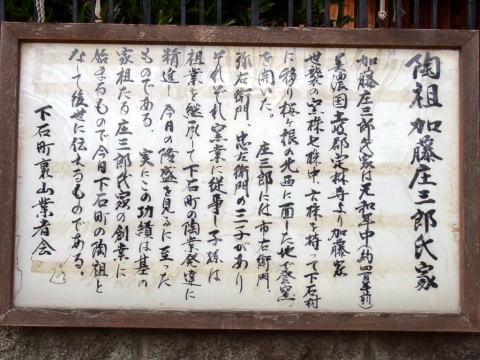 陶祖加藤庄三郎氏家
加藤庄三郎氏家は元和年中(約四百年前)
美濃国土岐郡定林寺より加藤家
世襲の窯株七株中、六株を持って下石村
に移り桜ヶ根の北西に面した地で登窯
を開いた。 庄三郎には市右衛門、
弥右衛門、忠左衛門の三子があり
それぞれ窯業に従事し子孫は
祖業を継承して下石町の陶業発達に
精進し今日の隆盛を見るに至った
ものである。 実にこの功績は基の
家祖たる庄三郎氏家の創業に
始まるもので今日下石町の陶祖と
なって後世に伝するものである。
下石町裏山業者会